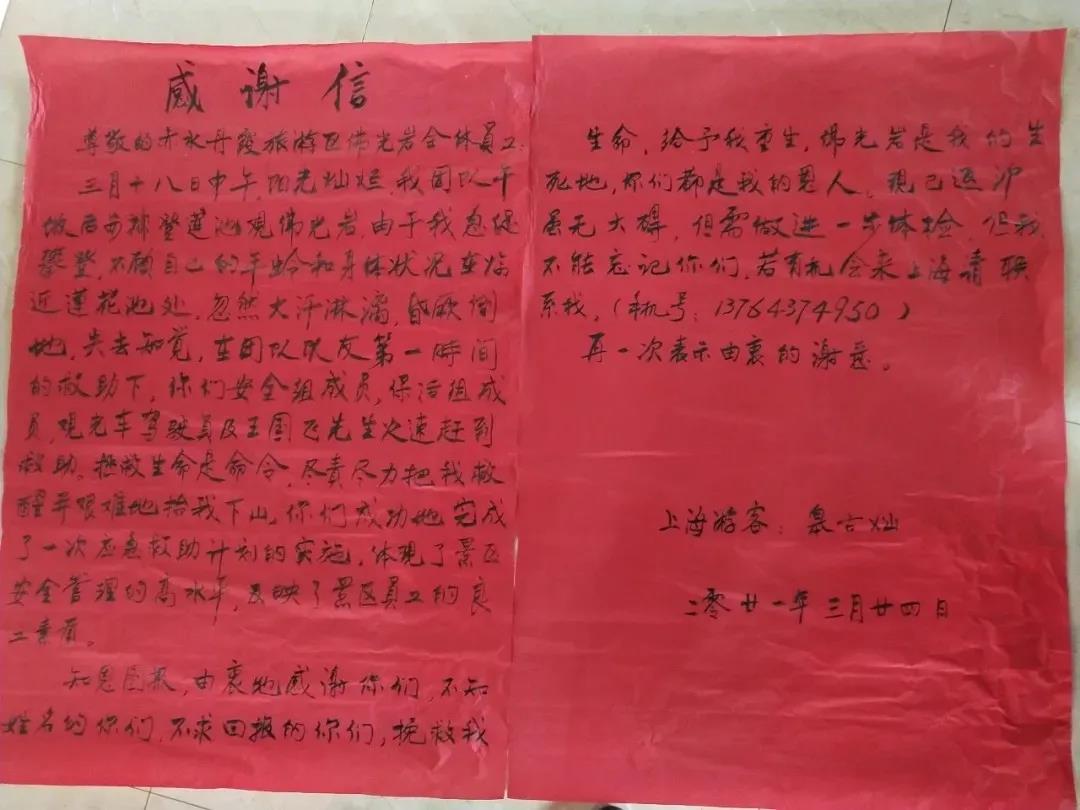 感谢信
尊敬的赤水丹霞旅游区佛光岩全体员工:
三月十八日中午,阳光灿烂,我团队午
饭后安排登莲池观佛光岩,由于我急促
攀登,不顾自己的年龄和身体状况在临
近莲花池处,忽然大汗淋漓,昏厥倒
地,失去知觉,在团队队友第一時间
的救助下,你们安全组成员,保洁组成
员,观光车驾驶员及王国飞先生火速赶到
救助。拯救生命是命令,尽责尽力把我救
醒并艰难地抬我下山,你们成功地完成
了一次应急救助计划的实施,体现了景区
安全管理的高水平,反映了景区员工的良
工素质。
知恩图报,由衷地感谢你们,不知
姓名的你们,不求回报的你们,挽救我
生命,给予我重生,佛光岩是我的生
死地,你们都是我的恩人。现已返沪
虽无大碍,但需做进一步体检,但我
不能忘记你们,若有机会来上海请联
系我,(手机号:13764374950)
再一次表示由衷的谢意。
上海游客:古灿
二零廿一年三月廿四日